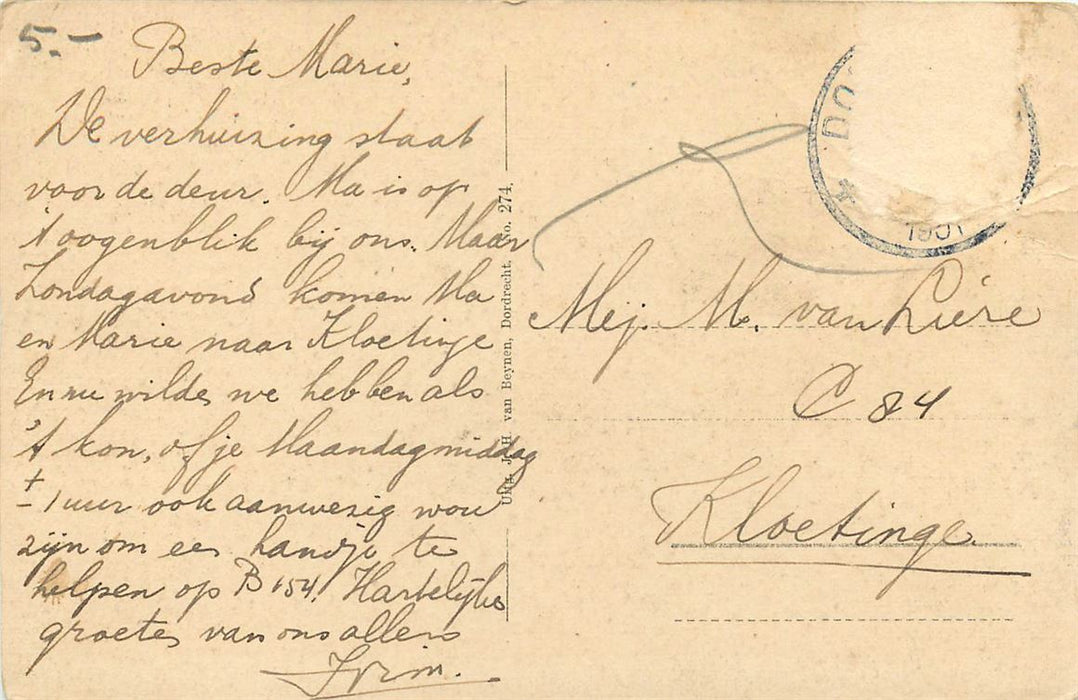 5.-
Beste Marie,
De verhuizing staat
voor de deur. Ma is op
't oogenblik bij ons. Maar
Zondagavond komen Ma
en Marie naar Kloetinge
En nu wilden we hebben als
't kon, of je Maandagmiddag
± 1 uur ook aanwezig wou
zijn om een handje te
helpen op B 154. Hartelijke
groeten van ons allen
Uitg. J. H. van Beynen, Dordrecht. No. 274.
Mej. M. van Liere
C 84
Kloetinge